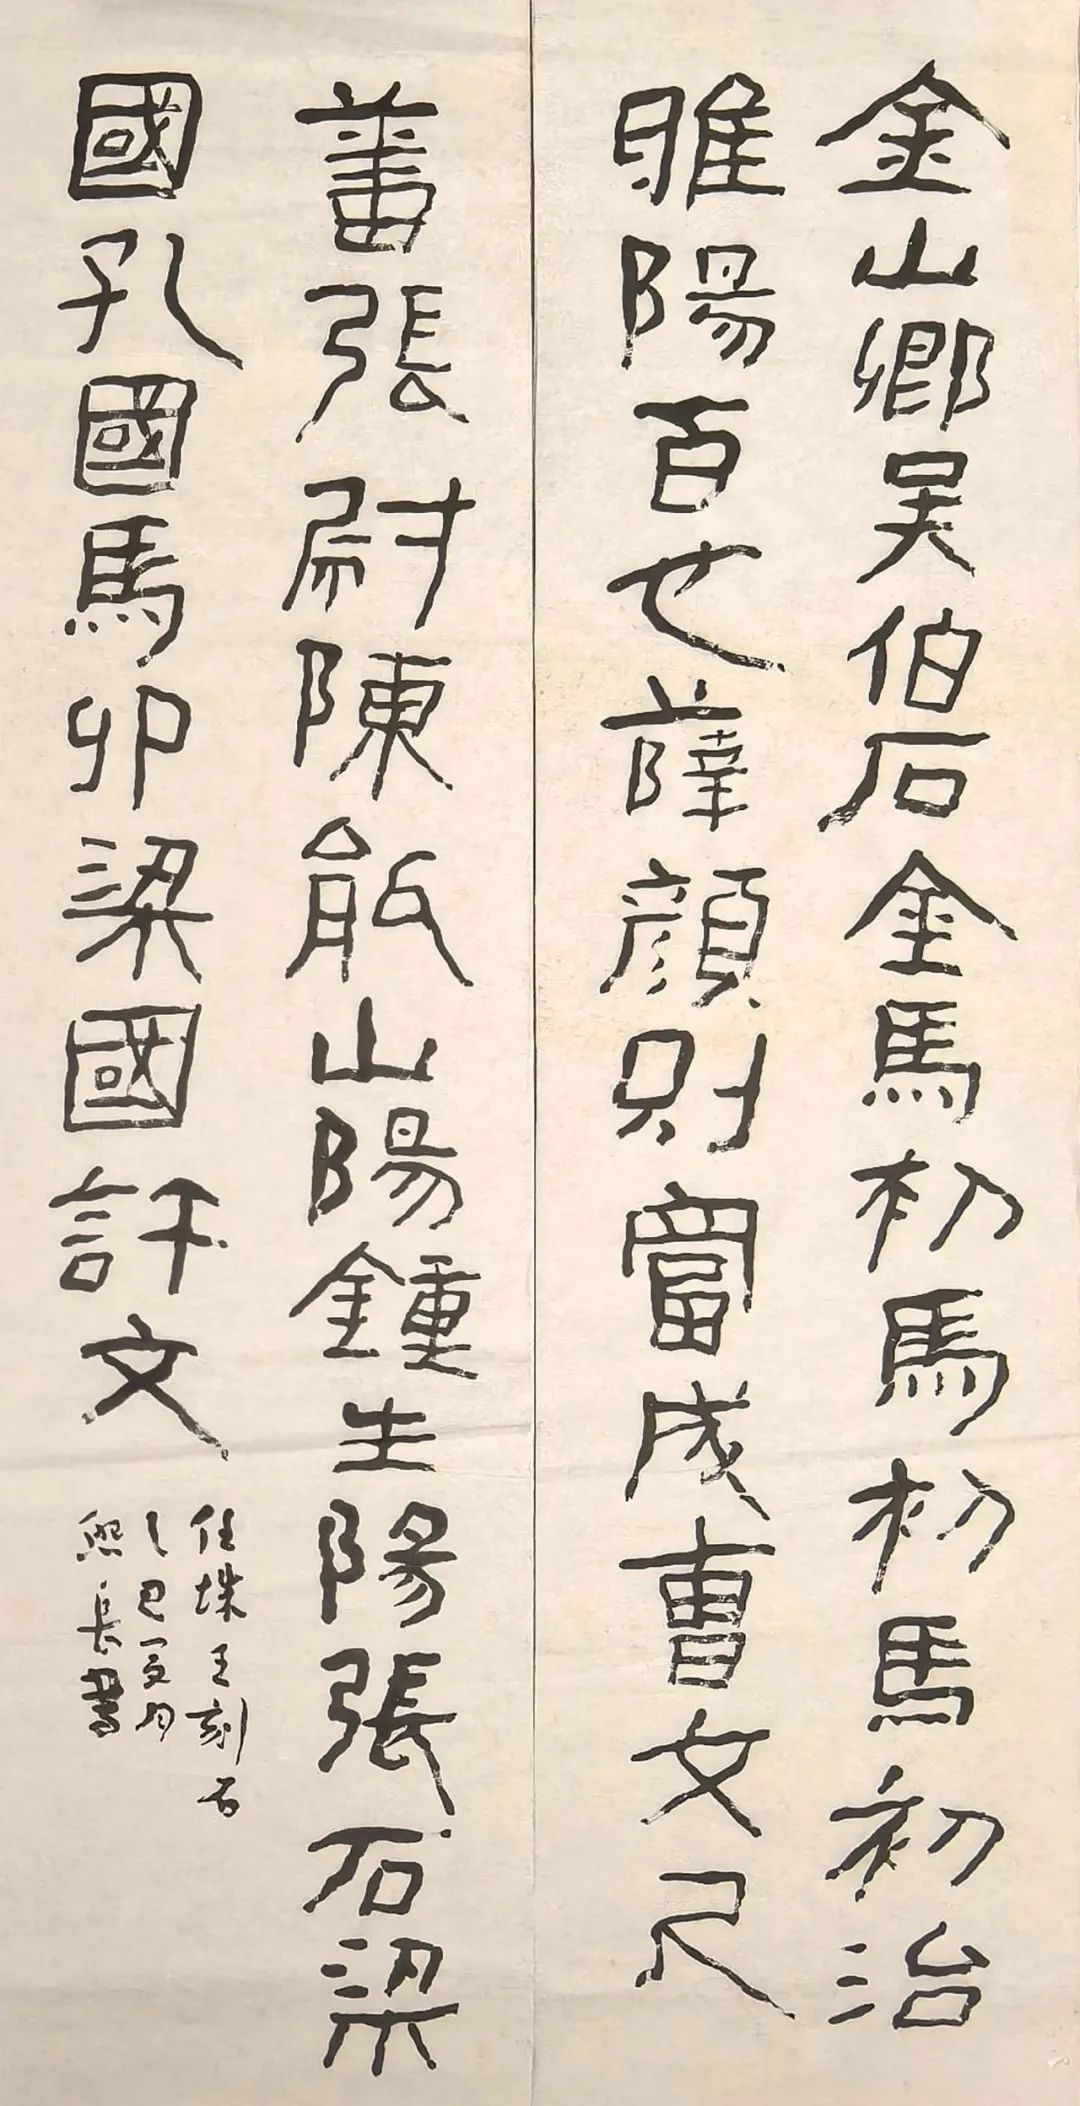 金山鄉吴伯石金馬初馬初馬初治
睢陽百也薛顔別當成曹文尺
蕃張尉陳敞山陽鍾生陽張石梁
國孔國馬卯梁國許文
任城王刻石
乙巳夏月
熙長書